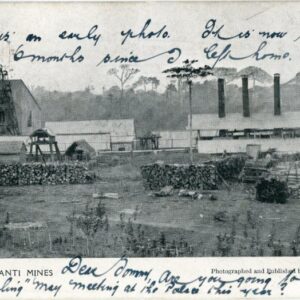 is an early photo. It is now
6 months since I left home.
ANTI MINES
Photographed and Published
Dear Bonny, Are you going to
May meeting at the Palace this year?